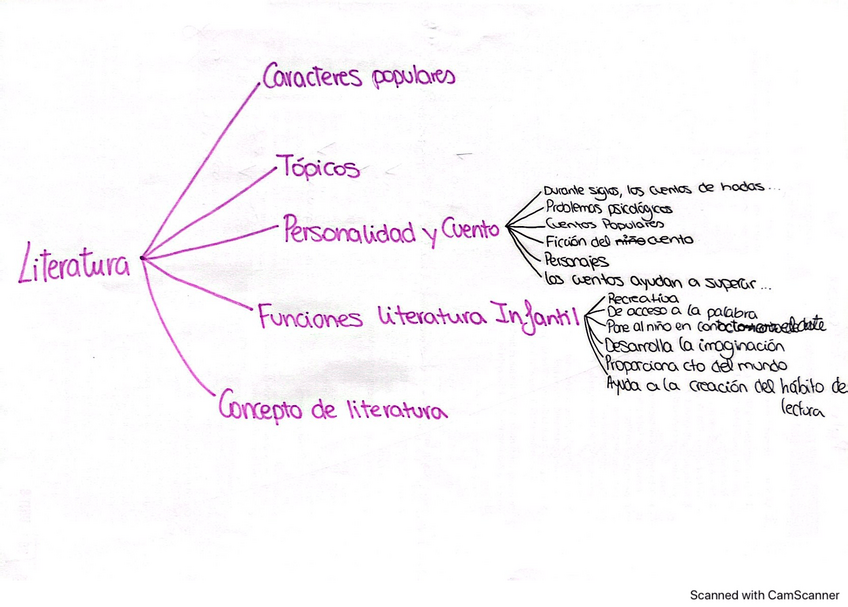 Caracteres populares
Tópicos
Literatura
Personalidad y Cuento
Durante siglos, los cuentos de hadas...
Problemas psicológicos
Cuentos Populares
Ficción del niño cuento
Personajes
los cuentos ayudan a superar...
Funciones literatura Infantil
Recreativa
De acceso a la palabra
Pone al niño en contacto
Desarrolla la imaginación
Proporciona cto del mundo
Ayuda a la creación del hábito de
lectura
Concepto de literatura
Scanned with CamScanner